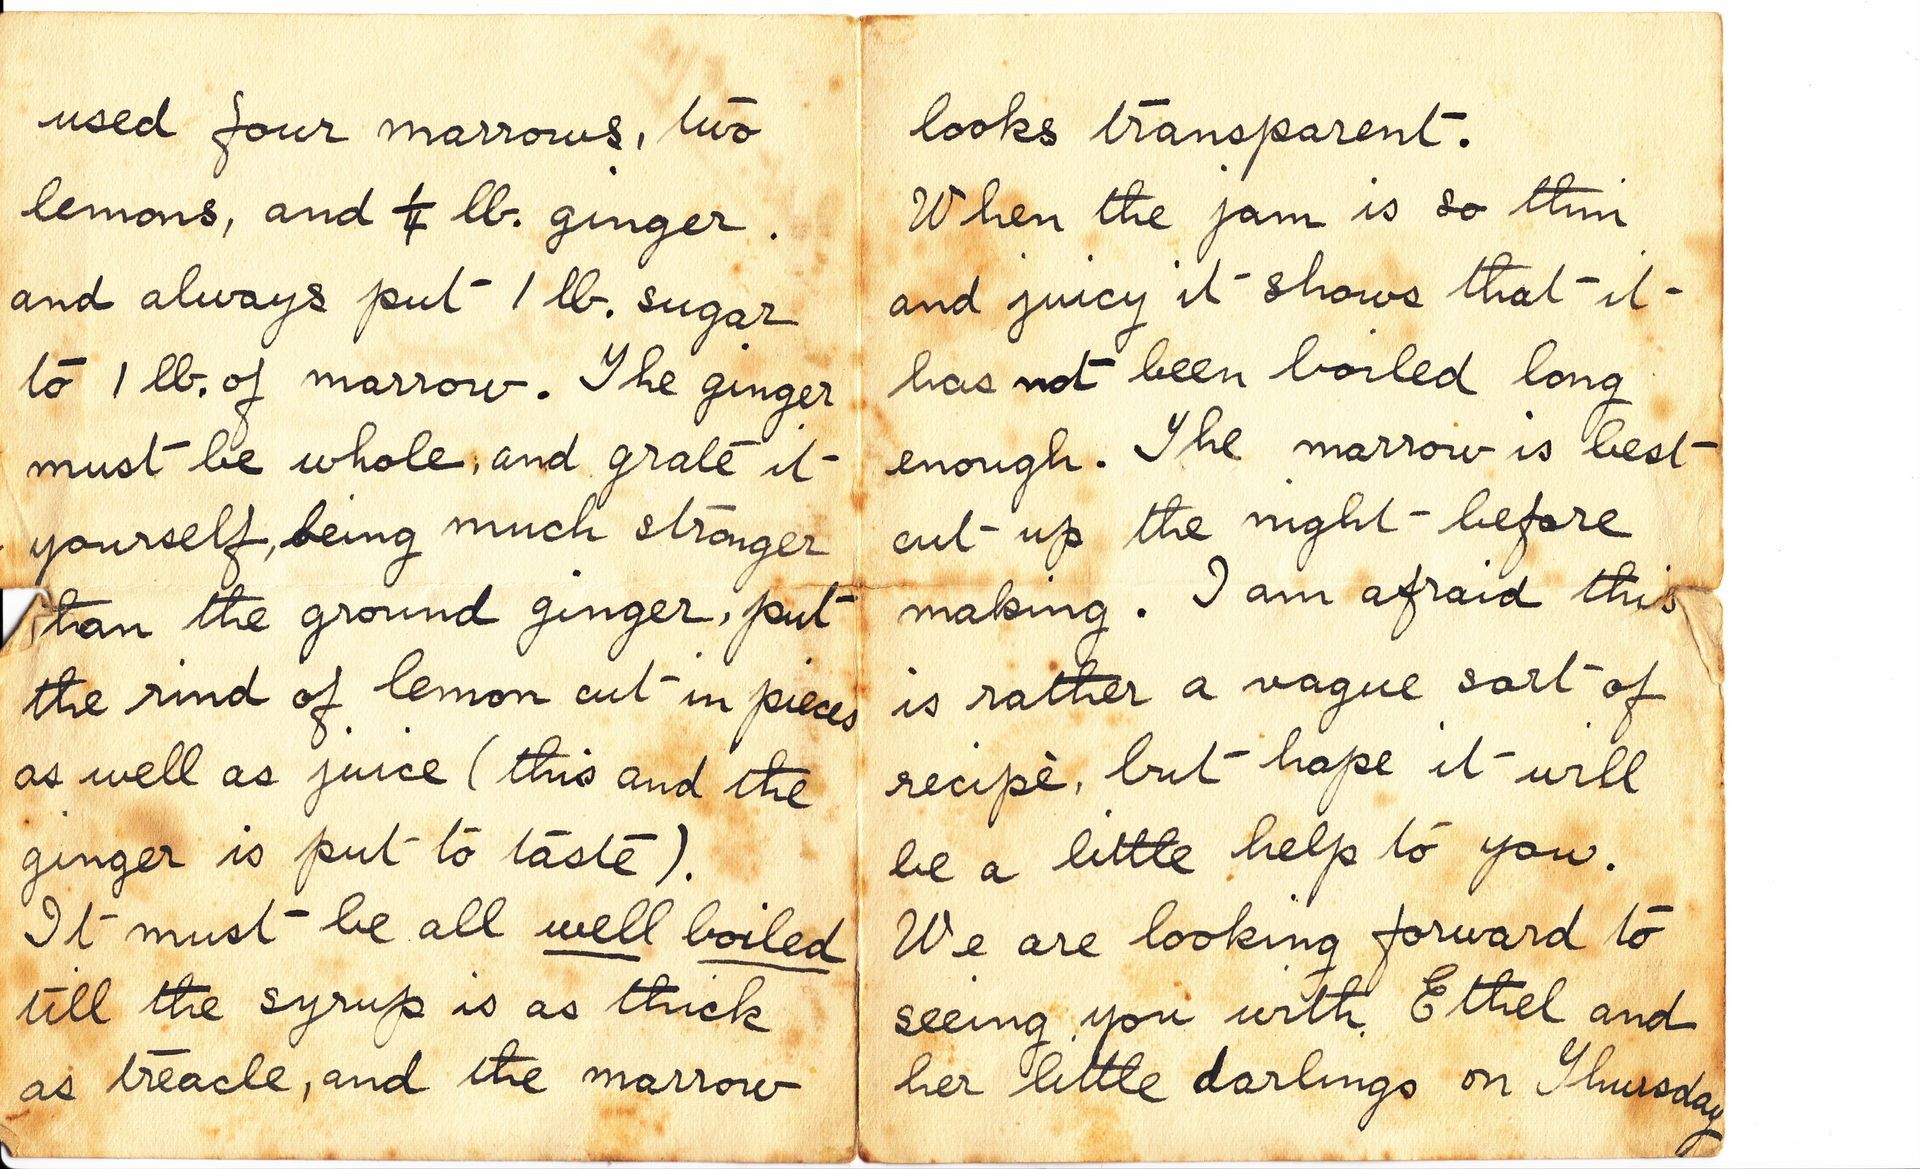 used four marrows, two
lemons, and ¼ lb. ginger.
and always put 1 lb. sugar
to 1 lb. of marrow. The ginger
must be whole, and grate it
yourself, being much stronger
than the ground ginger, put
the rind of lemon cut in pieces
as well as juice (this and the
ginger is put to taste).
It must be all well boiled
till the syrup is as thick
as treacle, and the marrow
looks transparent.
When the jam is so thin
and juicy it shows that it
has not been boiled long
enough. The marrow is best
cut up the night before
making. I am afraid this
is rather a vague sort of
recipè, but hope it will
be a little help to you.
We are looking forward to
seeing you with Ethel and
her little darlings on Thursday